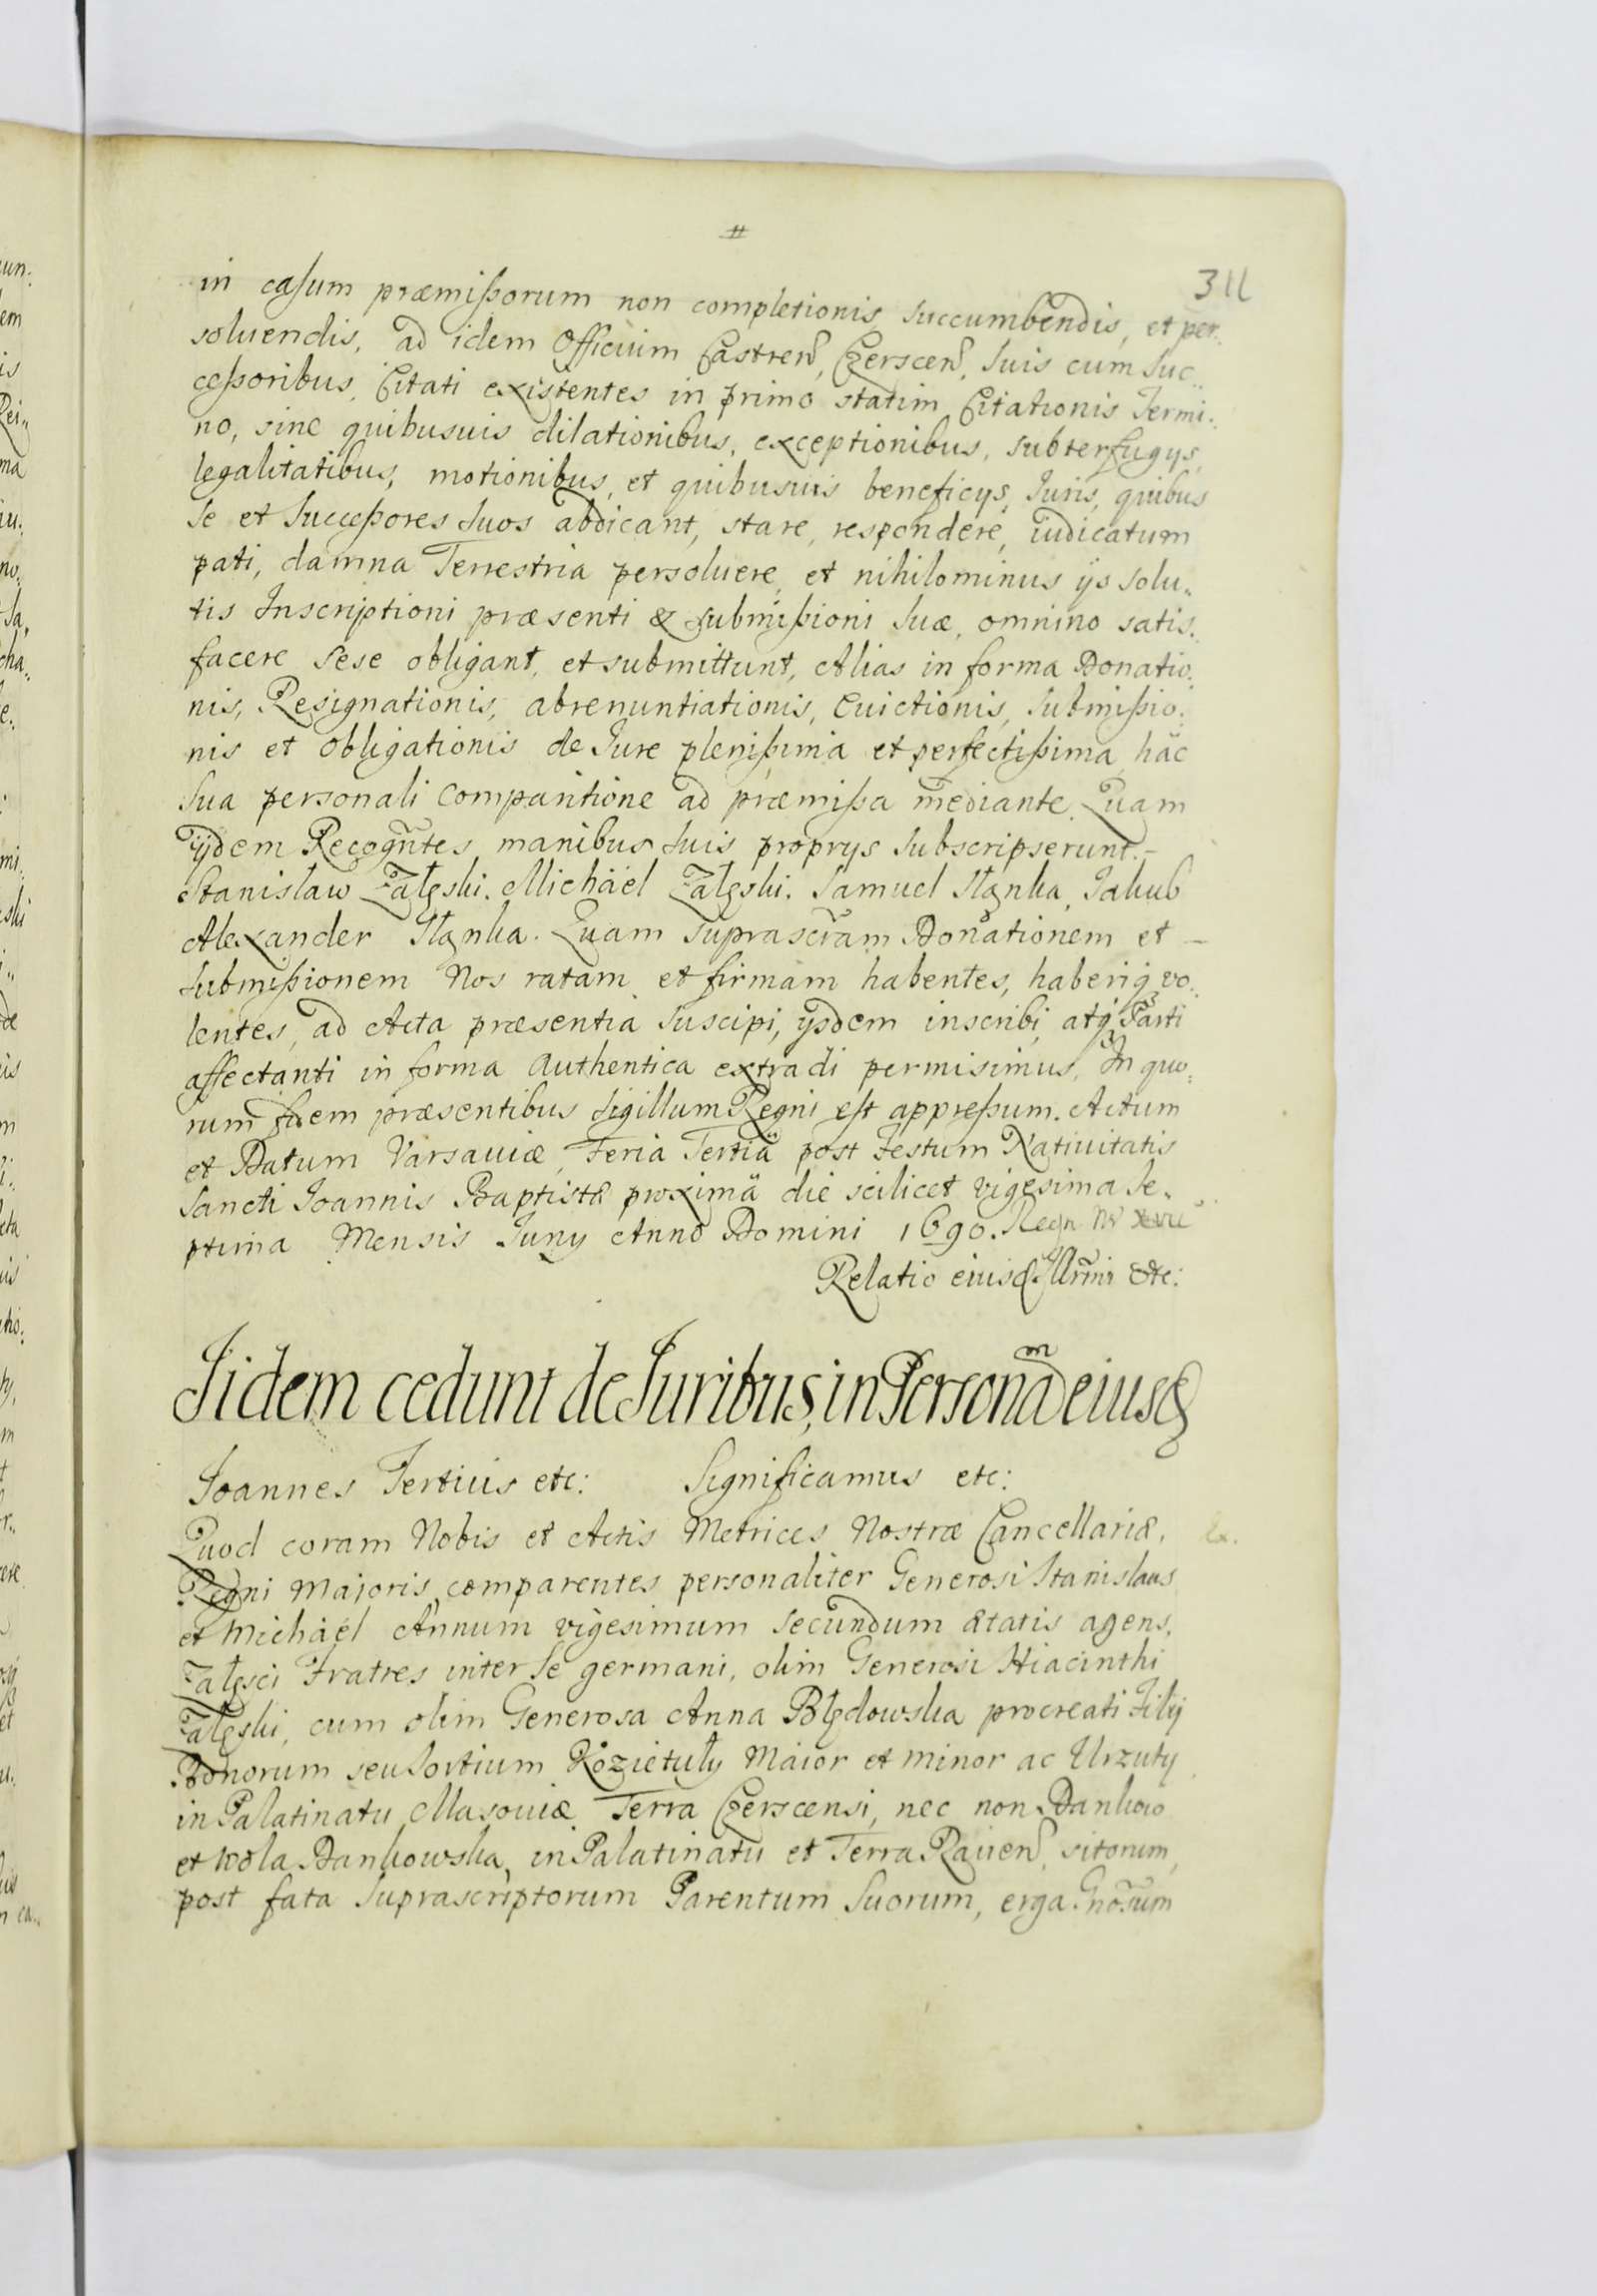 #
311
in casum præmissorum non completionis succumbendis, et per„
soluendis, ad idem Officium Castren, Czerscen, suis cum suc„
cessoribus, Citati existentes in primo statim Citationis Termi„
no, sine quibusuis dilationibus, exceptionibus, subterfugys,
legalitatibus, motionibus, et quibusuis beneficys Iuris, quibus
se et Successores suos abdicant, stare, respondere, iudicatum
pati, damna Terrestria persoluere, et nihilominus ijs solu„
tis Inscriptioni præsenti & submissioni suæ, omnino satis„
facere sese obligant, et submittunt, Alias in forma Donatio„
nis, Resignationis, abrenuntiationis, Euictionis, Submissio„
nis et obligationis de Iure plenissima et perfectissima, hac
sua personali comparitione ad præmissa mediante. Quam
ijdem Recogntes manibus suis proprys subscripserunt.–
Stanisław Załęski. Michaël Załęski. Samuel Słąnka, Jakub
Alexander Słąnka. Quam suprascram Donationem et –
Submissionem Nos ratam et firmam habentes, haberiq vo„
lentes, ad Acta præsentia suscipi, ysdem inscribi, atq Parti
affectanti in forma Authentica extradi permisimus, In quo„
rum fidem præsentibus Sigillum Regni est appressum. Actum
et Datum Varsauiæ, Feria Tertiä post Festum Natiuitatis
Sancti Ioannis Baptistæ proximä die scilicet vigesima se„
ptima Mensis Iuny Anno Domini 1690. Regn. Nri xvii
Relatio eiusd. Illrmi etc:
Iidem cedunt de Iuribus, in Personam eiusd
Ioannes Tertius etc: Significamus etc:
Quod coram Nobis et Actis Metrices Nostræ Cancellariæ,
Regni Maioris, comparentes personaliter Generosi Stanislaus
et Michaël Annum vigesimum secundum ætatis agens,
Załęsci Fratres inter se germani, olim Generosi Hiacinthi
Załęski, cum olim Generosa Anna Błędowska procreati Filij
Bonorum seu Sortium Kozietuły Maior et Minor ac Urzuty
in Palatinatu Masouiæ Terra Czerscensi, nec non Dankow
et Wola Dankowska, in Palatinatu et Terra Rauen, sitorum,
post fata suprascriptorum Parentum suorum, erga Gnosum